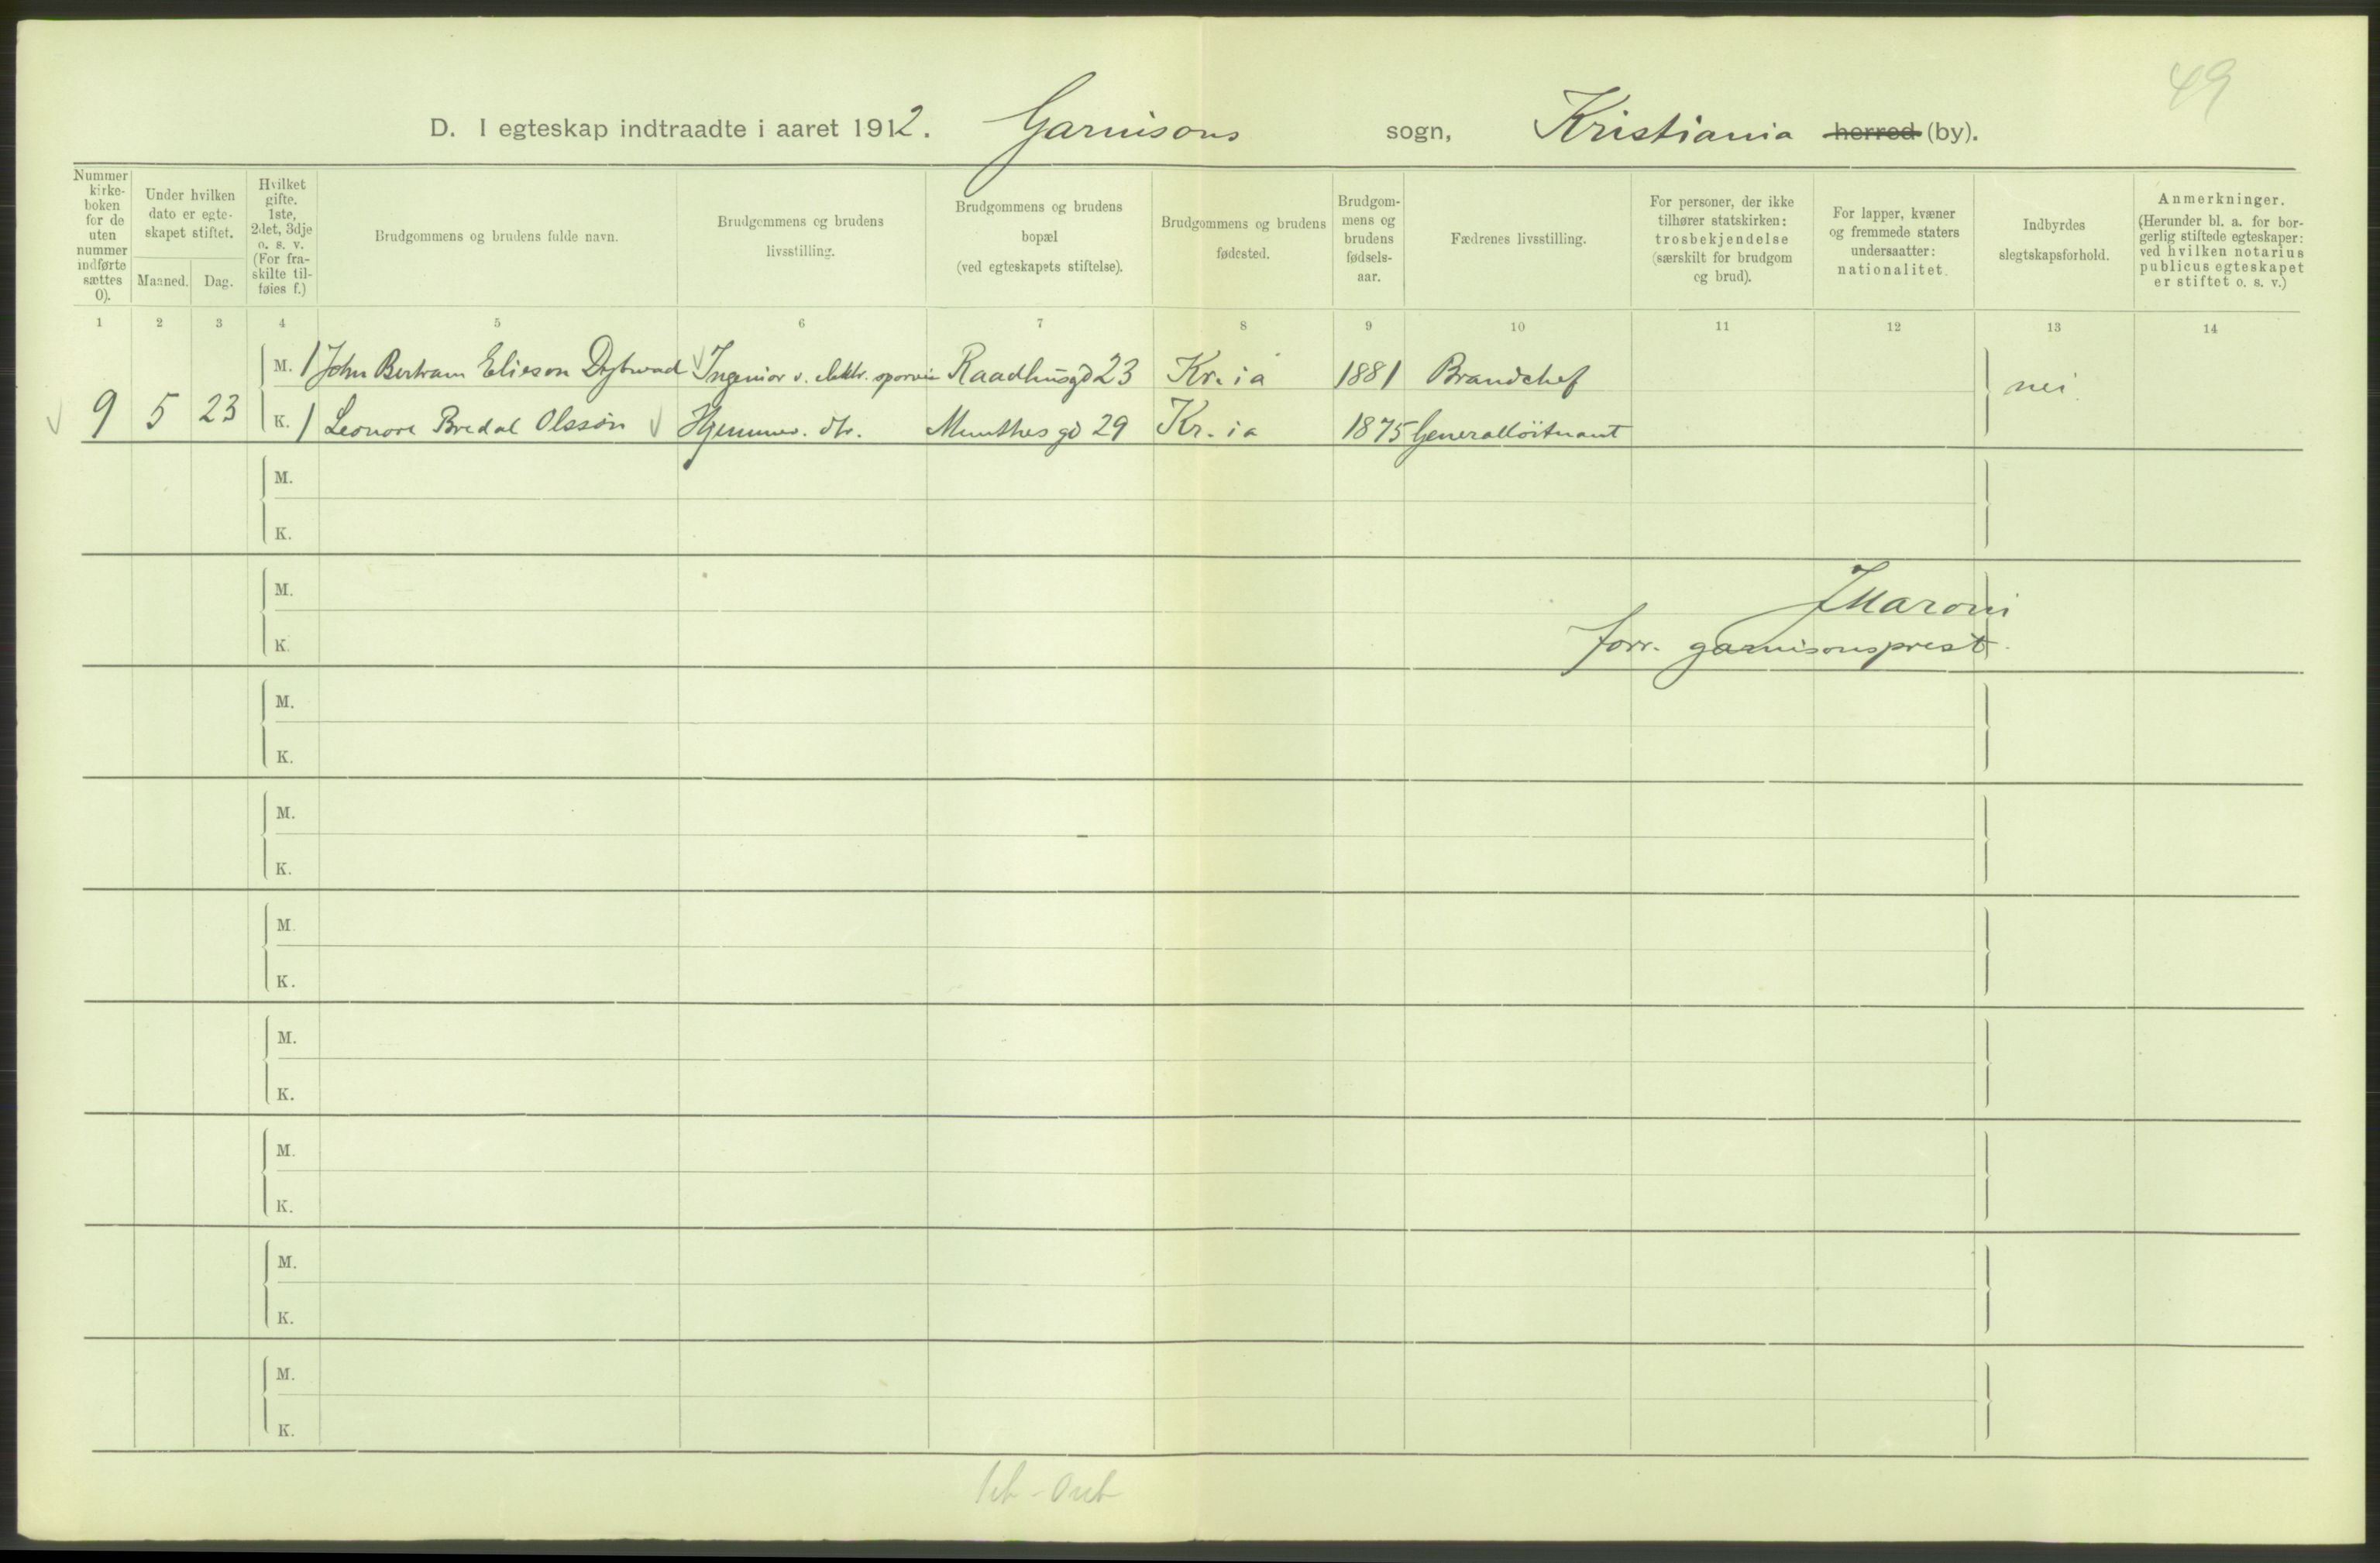 49
D. I egteskap indtraadte i aaret 1912. Garnisons sogn, Kristiania herred (by).
Nummer kirkeboken for de uten nummer indførte sættes 0).
Under hvilken dato er egteskapet stiftet.
Maaned.
Dag.
Hvilket gifte. 1ste, 2det, 3dje o. s. v. (For fraskilte tilføies f.)
Brudgommens og brudens fulde navn.
Brudgommens og brudens livsstilling.
Brudgommens og brudens bopæl (ved egteskapets stiftelse).
Brudgommens og brudens fødested.
Brudgommens og brudens fødselsaar.
Fædrenes livsstilling.
For personer, der ikke tilhører statskirken: trosbekjendelse (særskilt for brudgom og brud).
For lapper, kvæner og fremmede staters undersaatter: nationalitet.
Indbyrdes slegtskapsforhold.
Anmerkninger. (Herunder bl. a. for borgerlig stiftede egteskaper: ved hvilken notarius publicus egteskapet er stiftet o. s. v.)
1 2 3 4 5 6 7 8 9 10 11 12 13 14
M. 1 John Bertram Elieson Dybwad Ingeniør v. elektr. sporvei Raadhusgd 23 Kr.ia 1881 Brandchef nei.
9 5 23 K. 1 Leonore Bredal Olssøn Hjemmev. dtr. Munthesgd 29 Kr.ia 1875 Generalløitnant
M.
K.
M. JMaroni
K. forr. garnisonsprest.
M.
K.
M.
K.
M.
K.
M.
K.
M.
K.
M.
K.
M.
K.